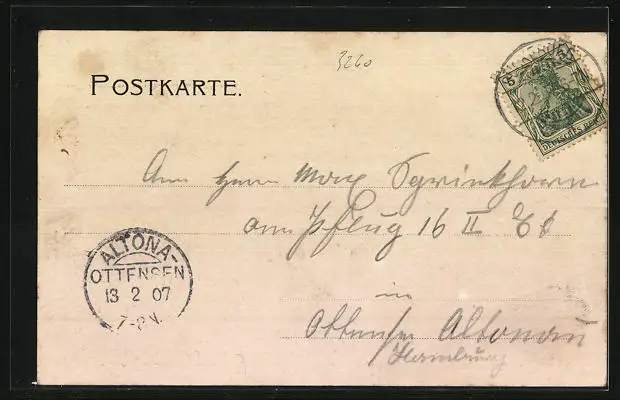 3260
POSTKARTE.
DEUTSCHES REICH
An Herrn Max
am Pflug 16 II
in
Ottensen Altona
/Hamburg
ALTONA-
OTTENSEN
13 2 07
7-8 N.